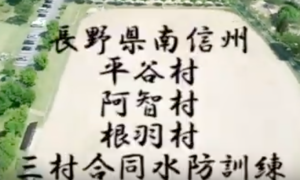 長野県南信州
平谷村
阿智村
根羽村
三村合同水防訓練